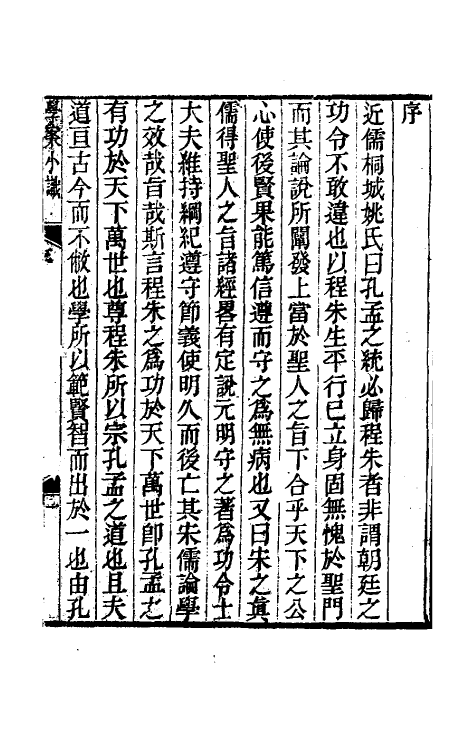 序
近儒桐城姚氏曰孔孟之統必歸程朱者非謂朝廷之
功令不敢違也以程朱生平行已立身固無愧於聖門
而其論說所闡發上當於聖人之旨下合乎天下之公
心使後賢果能篤信遵而守之爲無病也又曰宋之眞
儒得聖人之旨諸經畧有定說元明守之著爲功令士
大夫維持綱紀遵守節義使明久而後亡其宋儒論學
之效哉旨哉斯言程朱之爲功於天下萬世卽孔孟之
有功於天下萬世也尊程朱所以宗孔孟之道也且夫
道亘古今而不敝也學所以範賢智而出於一也由孔
學案小識